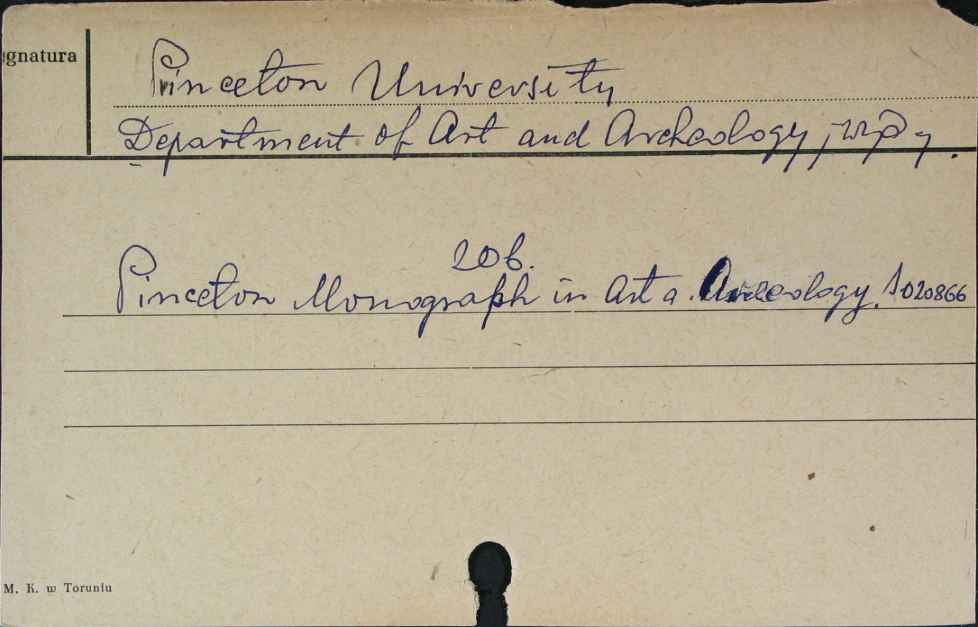 gnatura
Princeton University
Department of Art and Archeology, wyd.
zob.
Princeton Monograph in Art a. Archeology. S020866
M. K. w Toruniu